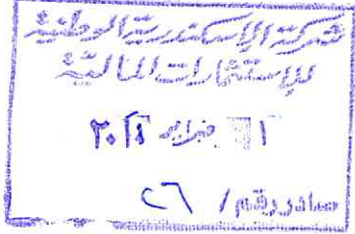 شركة الإسكندرية الوطنية
للإستثمارات المالية
فبراير
صادر رقم / ٢٦